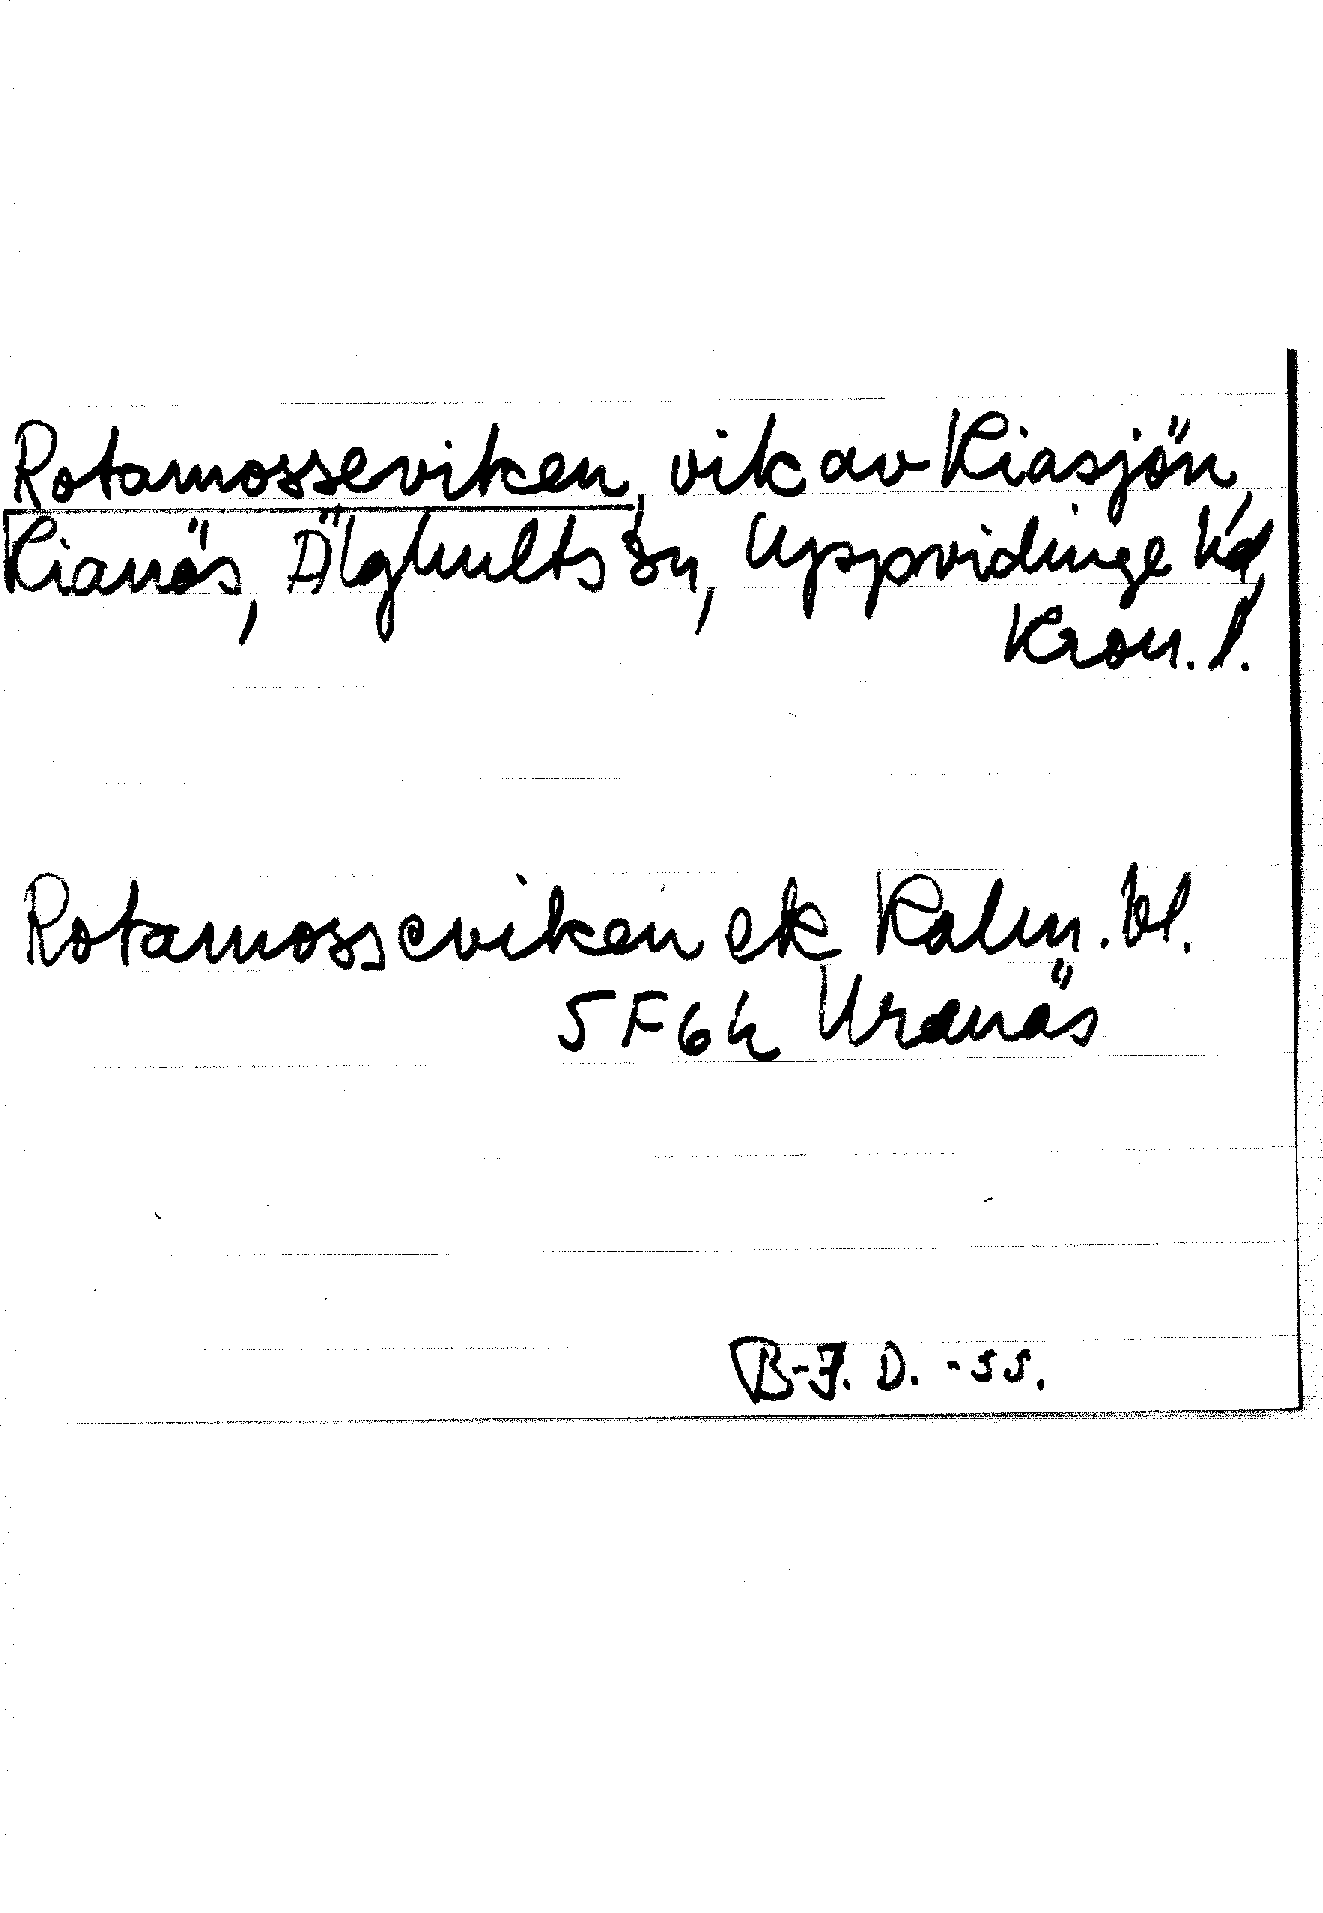 Rotamosseviken, vik av Kiasjön,
Kianäs, Älghults sn, Uppvidinge hd,
Kron. l.
Rotamosseviken ek Kalm. bl.
5F6h Uranäs
B-J. D. -55.